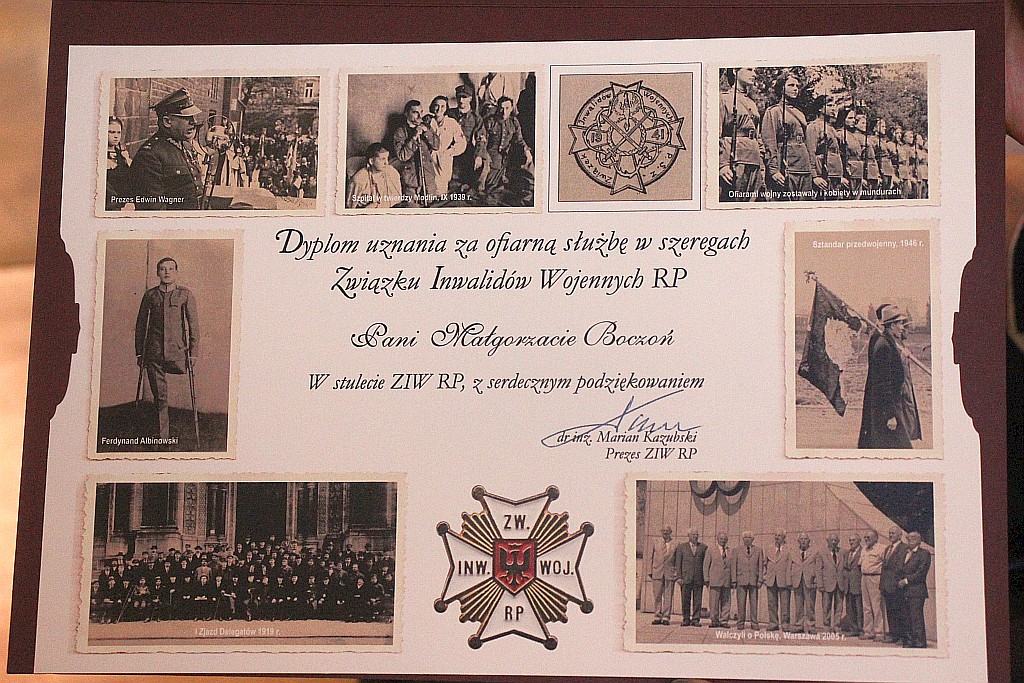 Prezes Edwin Wagner
Szpital w twierdzy Modlin, IX 1939 r.
Inwalidów Wojennych
1941
Ofiarami wojny zostawały i kobiety w mundurach
Dyplom uznania za ofiarną służbę w szeregach
Związku Inwalidów Wojennych RP
Sztandar przedwojenny, 1946 r.
Pani Małgorzacie Boczoń
W stulecie ZIW RP, z serdecznym podziękowaniem
Ferdynand Albinowski
dr inż. Marian Kazubski
Prezes ZIW RP
ZW.
INW. WOJ.
RP
I Zjazd Delegatów 1919 r.
Walczyli o Polskę, Warszawa 2005 r.